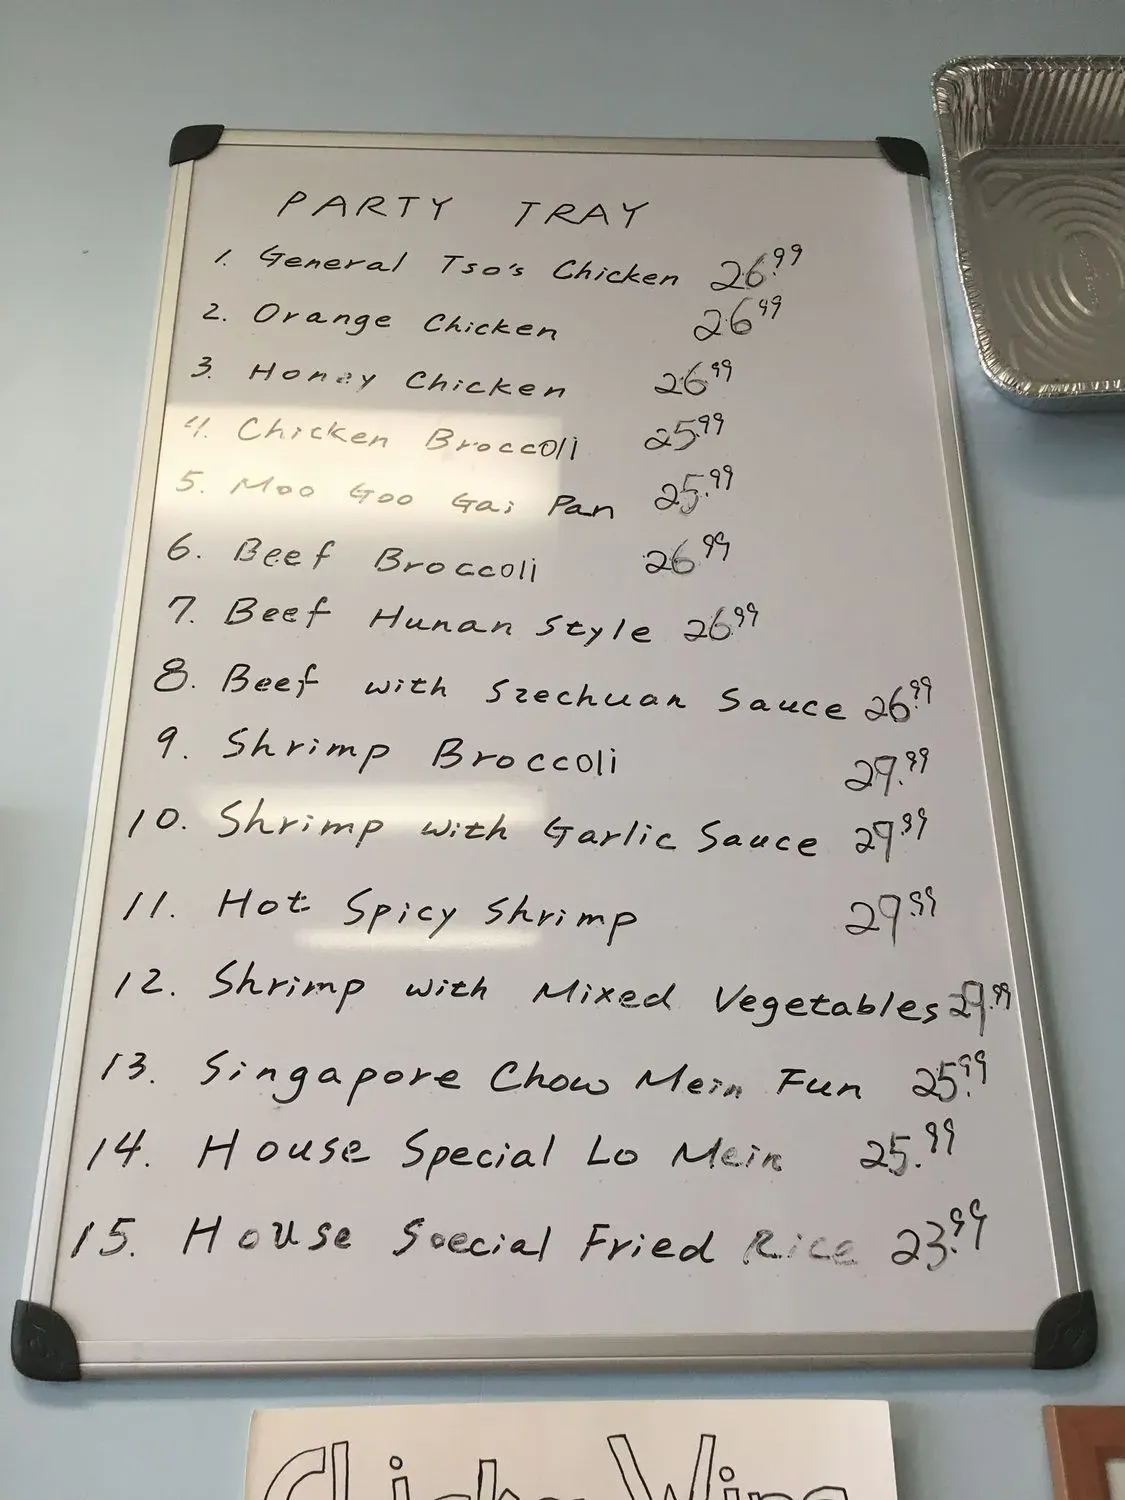 PARTY TRAY
1. General Tso's Chicken 26.99
2. Orange Chicken 26.99
3. Honey Chicken 26.99
4. Chicken Broccoli 25.99
5. Moo Goo Gai Pan 25.99
6. Beef Broccoli 26.99
7. Beef Hunan Style 26.99
8. Beef with Szechuan Sauce 26.99
9. Shrimp Broccoli 29.99
10. Shrimp with Garlic Sauce 29.99
11. Hot Spicy Shrimp 29.99
12. Shrimp with Mixed Vegetables 29.99
13. Singapore Chow Mein Fun 25.99
14. House Special Lo Mein 25.99
15. House Special Fried Rice 23.99